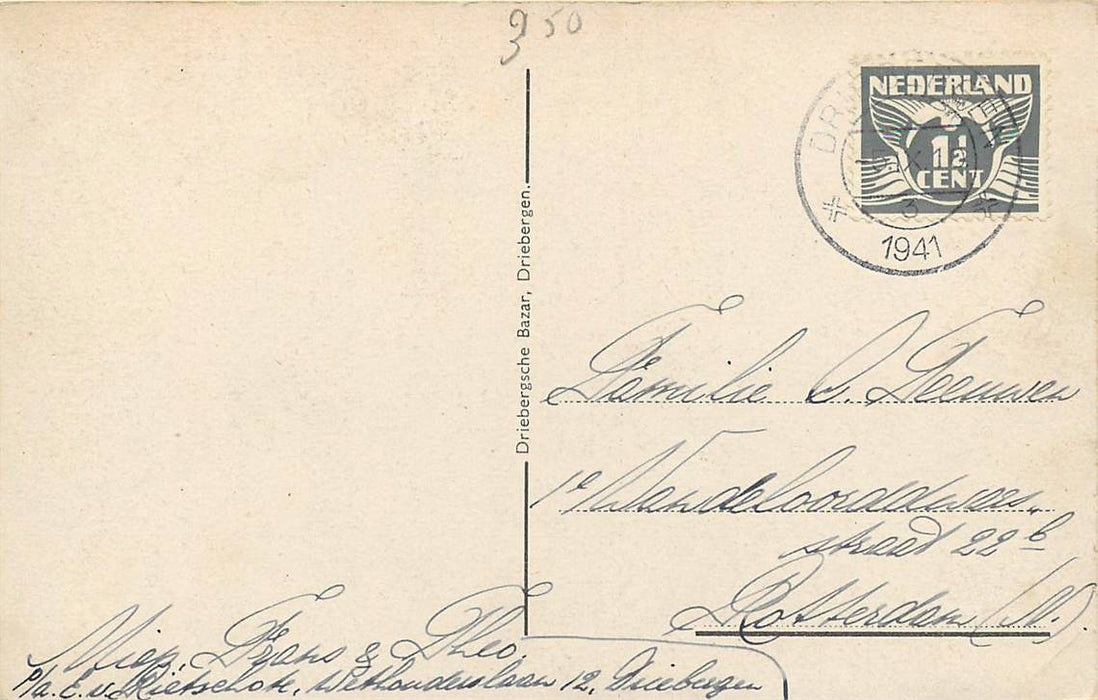 950
NEDERLAND
1½
CENT
3
1941
Driebergsche Bazar, Driebergen.
Familie v. Leeuwen
1e dwars„
straat 22b
Rotterdam (N).
Miep, Frans & Theo.
P/a. E. v. Rietschote, Wethouderslaan 12, Driebergen